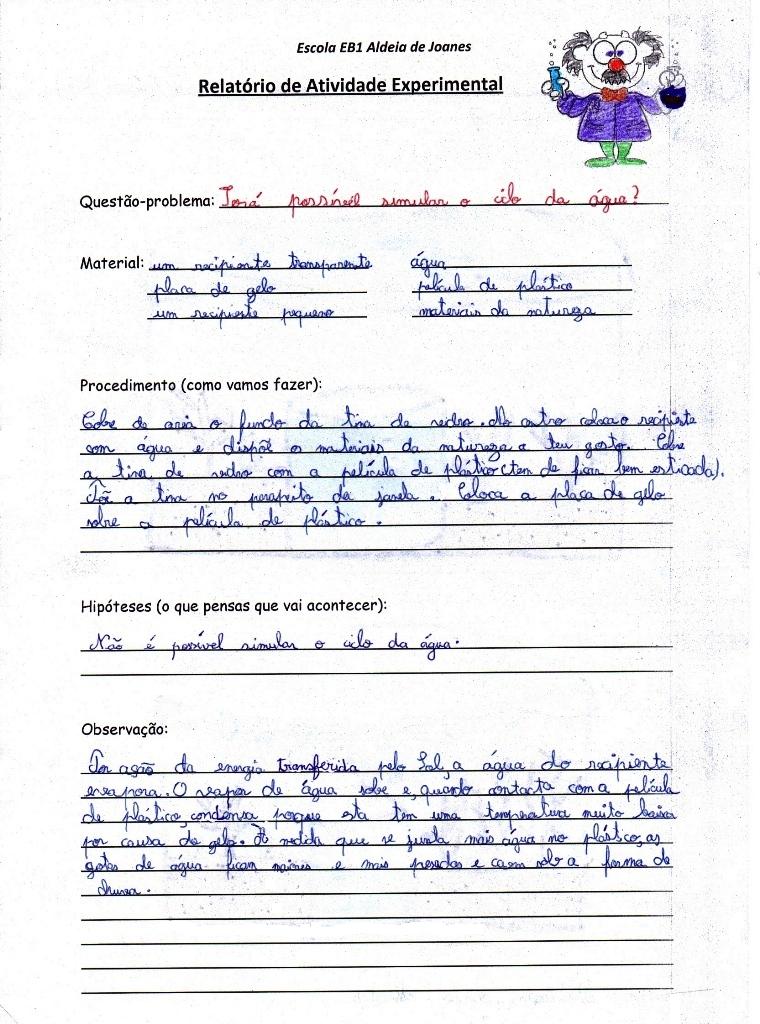 Escola EB1 Aldeia de Joanes
Relatório de Atividade Experimental
Questão-problema: Será possível simular o ciclo da água?
Material: um recipiente transparente água
placa de gelo película de plástico
um recipiente pequeno materiais da natureza
Procedimento (como vamos fazer):
Cobre de areia o fundo da tina de vidro. No centro coloca o recipiente
com água e dispõe os materiais da natureza a teu gosto. Cobre
a tina de vidro com a película de plástico (tem de ficar bem esticada).
Põe a tina no parapeito da janela. Coloca a placa de gelo
sobre a película de plástico.
Hipóteses (o que pensas que vai acontecer):
Não é possível simular o ciclo da água.
Observação:
Por ação da energia transferida pelo Sol, a água do recipiente
evapora. O vapor de água sobe e, quando contacta com a película
de plástico, condensa, porque esta tem uma temperatura muito baixa
por causa do gelo. À medida que se junta mais água no plástico, as
gotas de água ficam maiores e mais pesadas e caem sob a forma de
chuva.